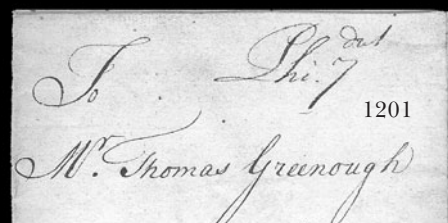 To
Phi. 7
1201
Mr. Thomas Greenough